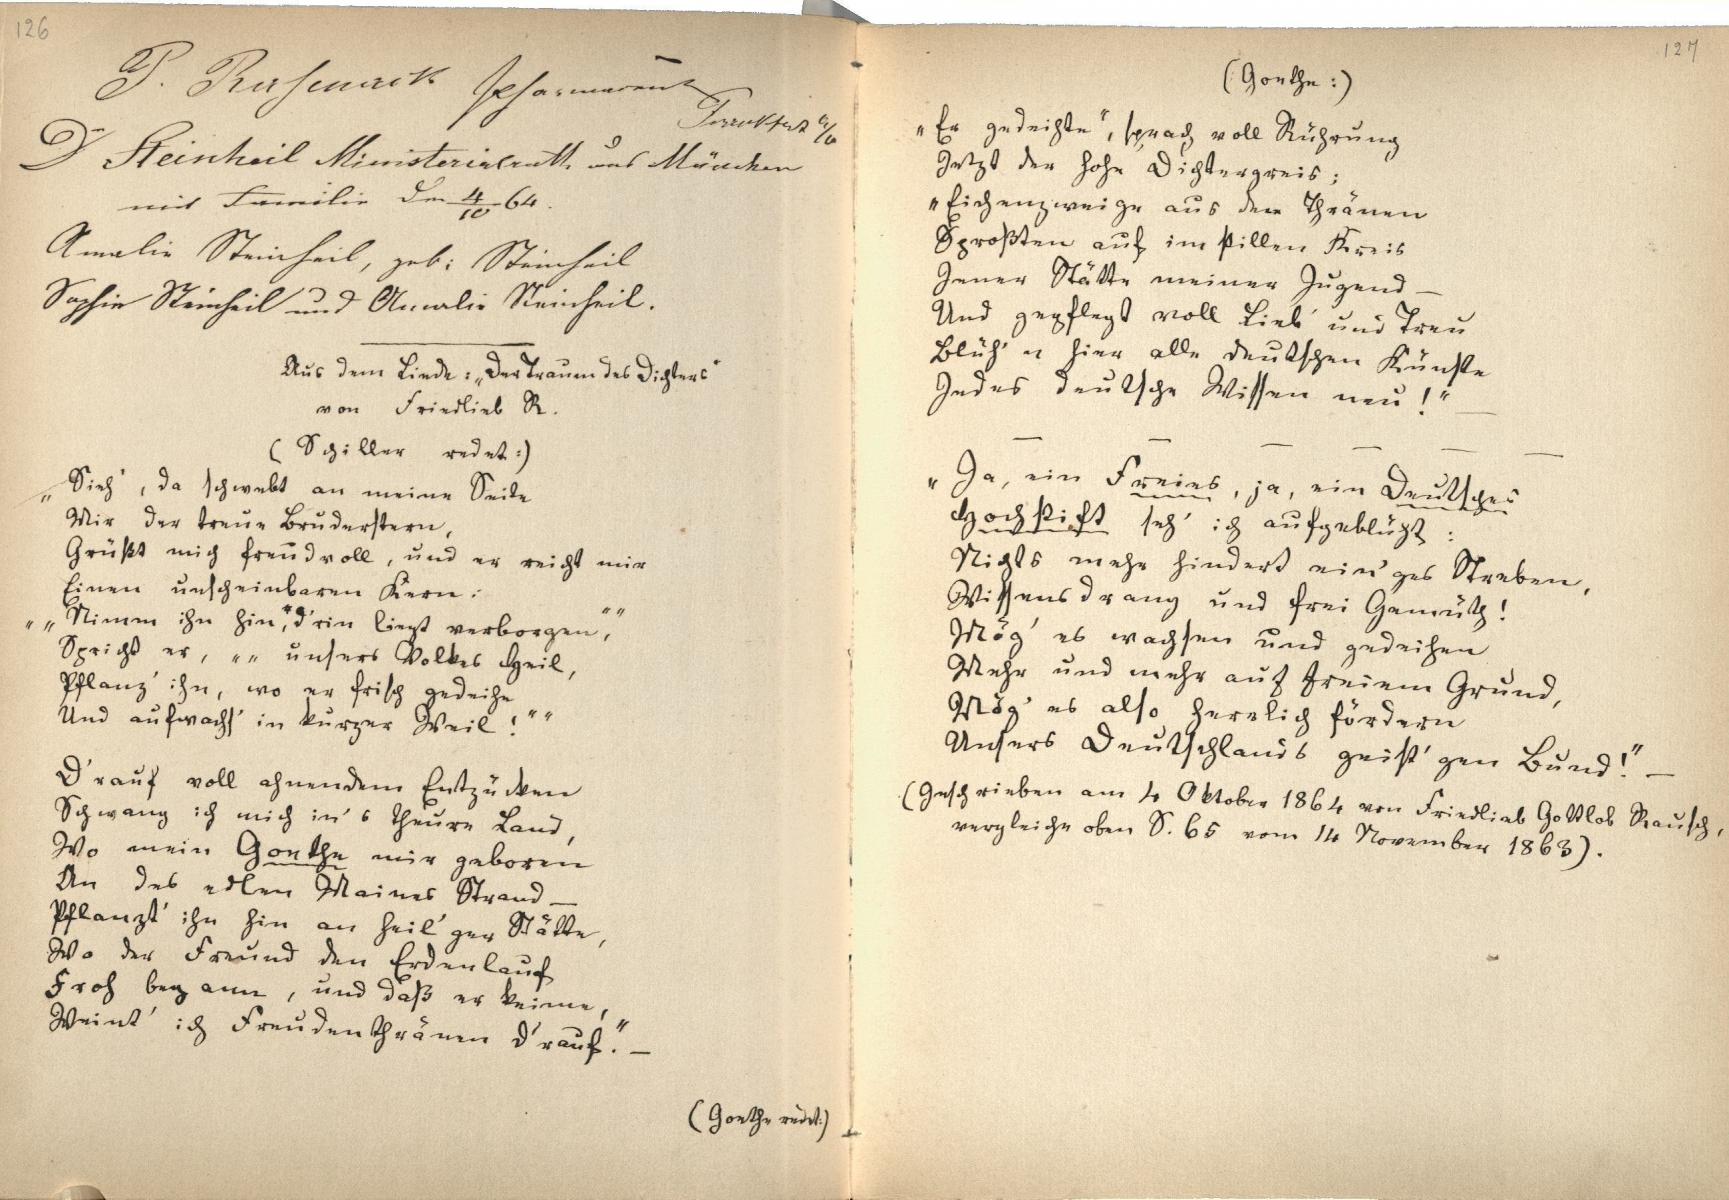 126
P. Rasenack Pharmaceut
Frankfurt a/O
Dr Steinheil Ministerialrath aus München
mit Familie den 4/10 64.
Amalie Steinheil, geb: Steinheil
Sophie Steinheil und Amalie Steinheil.
Aus dem Liede: „Der Traum des Dichters"
von Friedlieb R.
(Schiller redet:)
„Sieh', da schwebt an meine Seite
Mir der treue Bruderstern,
Grüßt mich freudvoll, und er reicht mir
Einen unscheinbaren Kern:
„„Nimm ihn hin,"" d'rin liegt verborgen,""
Spricht er, „„unsers Volkes Heil,
Pflanz' ihn, wo er frisch gedeihe
Und aufwachs' in kurzer Weil!""
D'rauf voll ahnendem Entzücken
Schwang ich mich in's theure Land,
Wo mein Goethe mir geboren
An des edlen Maines Strand —
Pflanzt' ihn hin an heil'ger Stätte,
Wo der Freund den Erdenlauf
Froh begann, und daß er keime,
Weint' ich Freudenthränen d'rauf." —
(Goethe redet:)
127
(Goethe:)
„Er gedeihte", sprach voll Rührung
Jetzt der hohe Dichtergreis;
„Eichenzweige aus den Thränen
Sproßten auf im stillen Kreis
Jener Stätte meiner Jugend —
Und gepflegt voll Lieb' und Treu
Blüh'n hier alle deutschen Künste
Jedes deutsche Wissen neu!" —
— — — — —
„Ja, ein Freies, ja, ein Deutsches
Hochstift seh' ich aufgeblüht:
Nichts mehr hindert ein'ges Streben,
Wissensdrang und frei Gemüth!
Mög' es wachsen und gedeihen
Mehr und mehr auf freiem Grund,
Mög' es also herrlich fördern
Unsers Deutschlands geist'gen Bund!" —
(Geschrieben am 4 Oktober 1864 von Friedlieb Gottlob Rausch,
vergleiche oben S. 65 vom 14 November 1863).